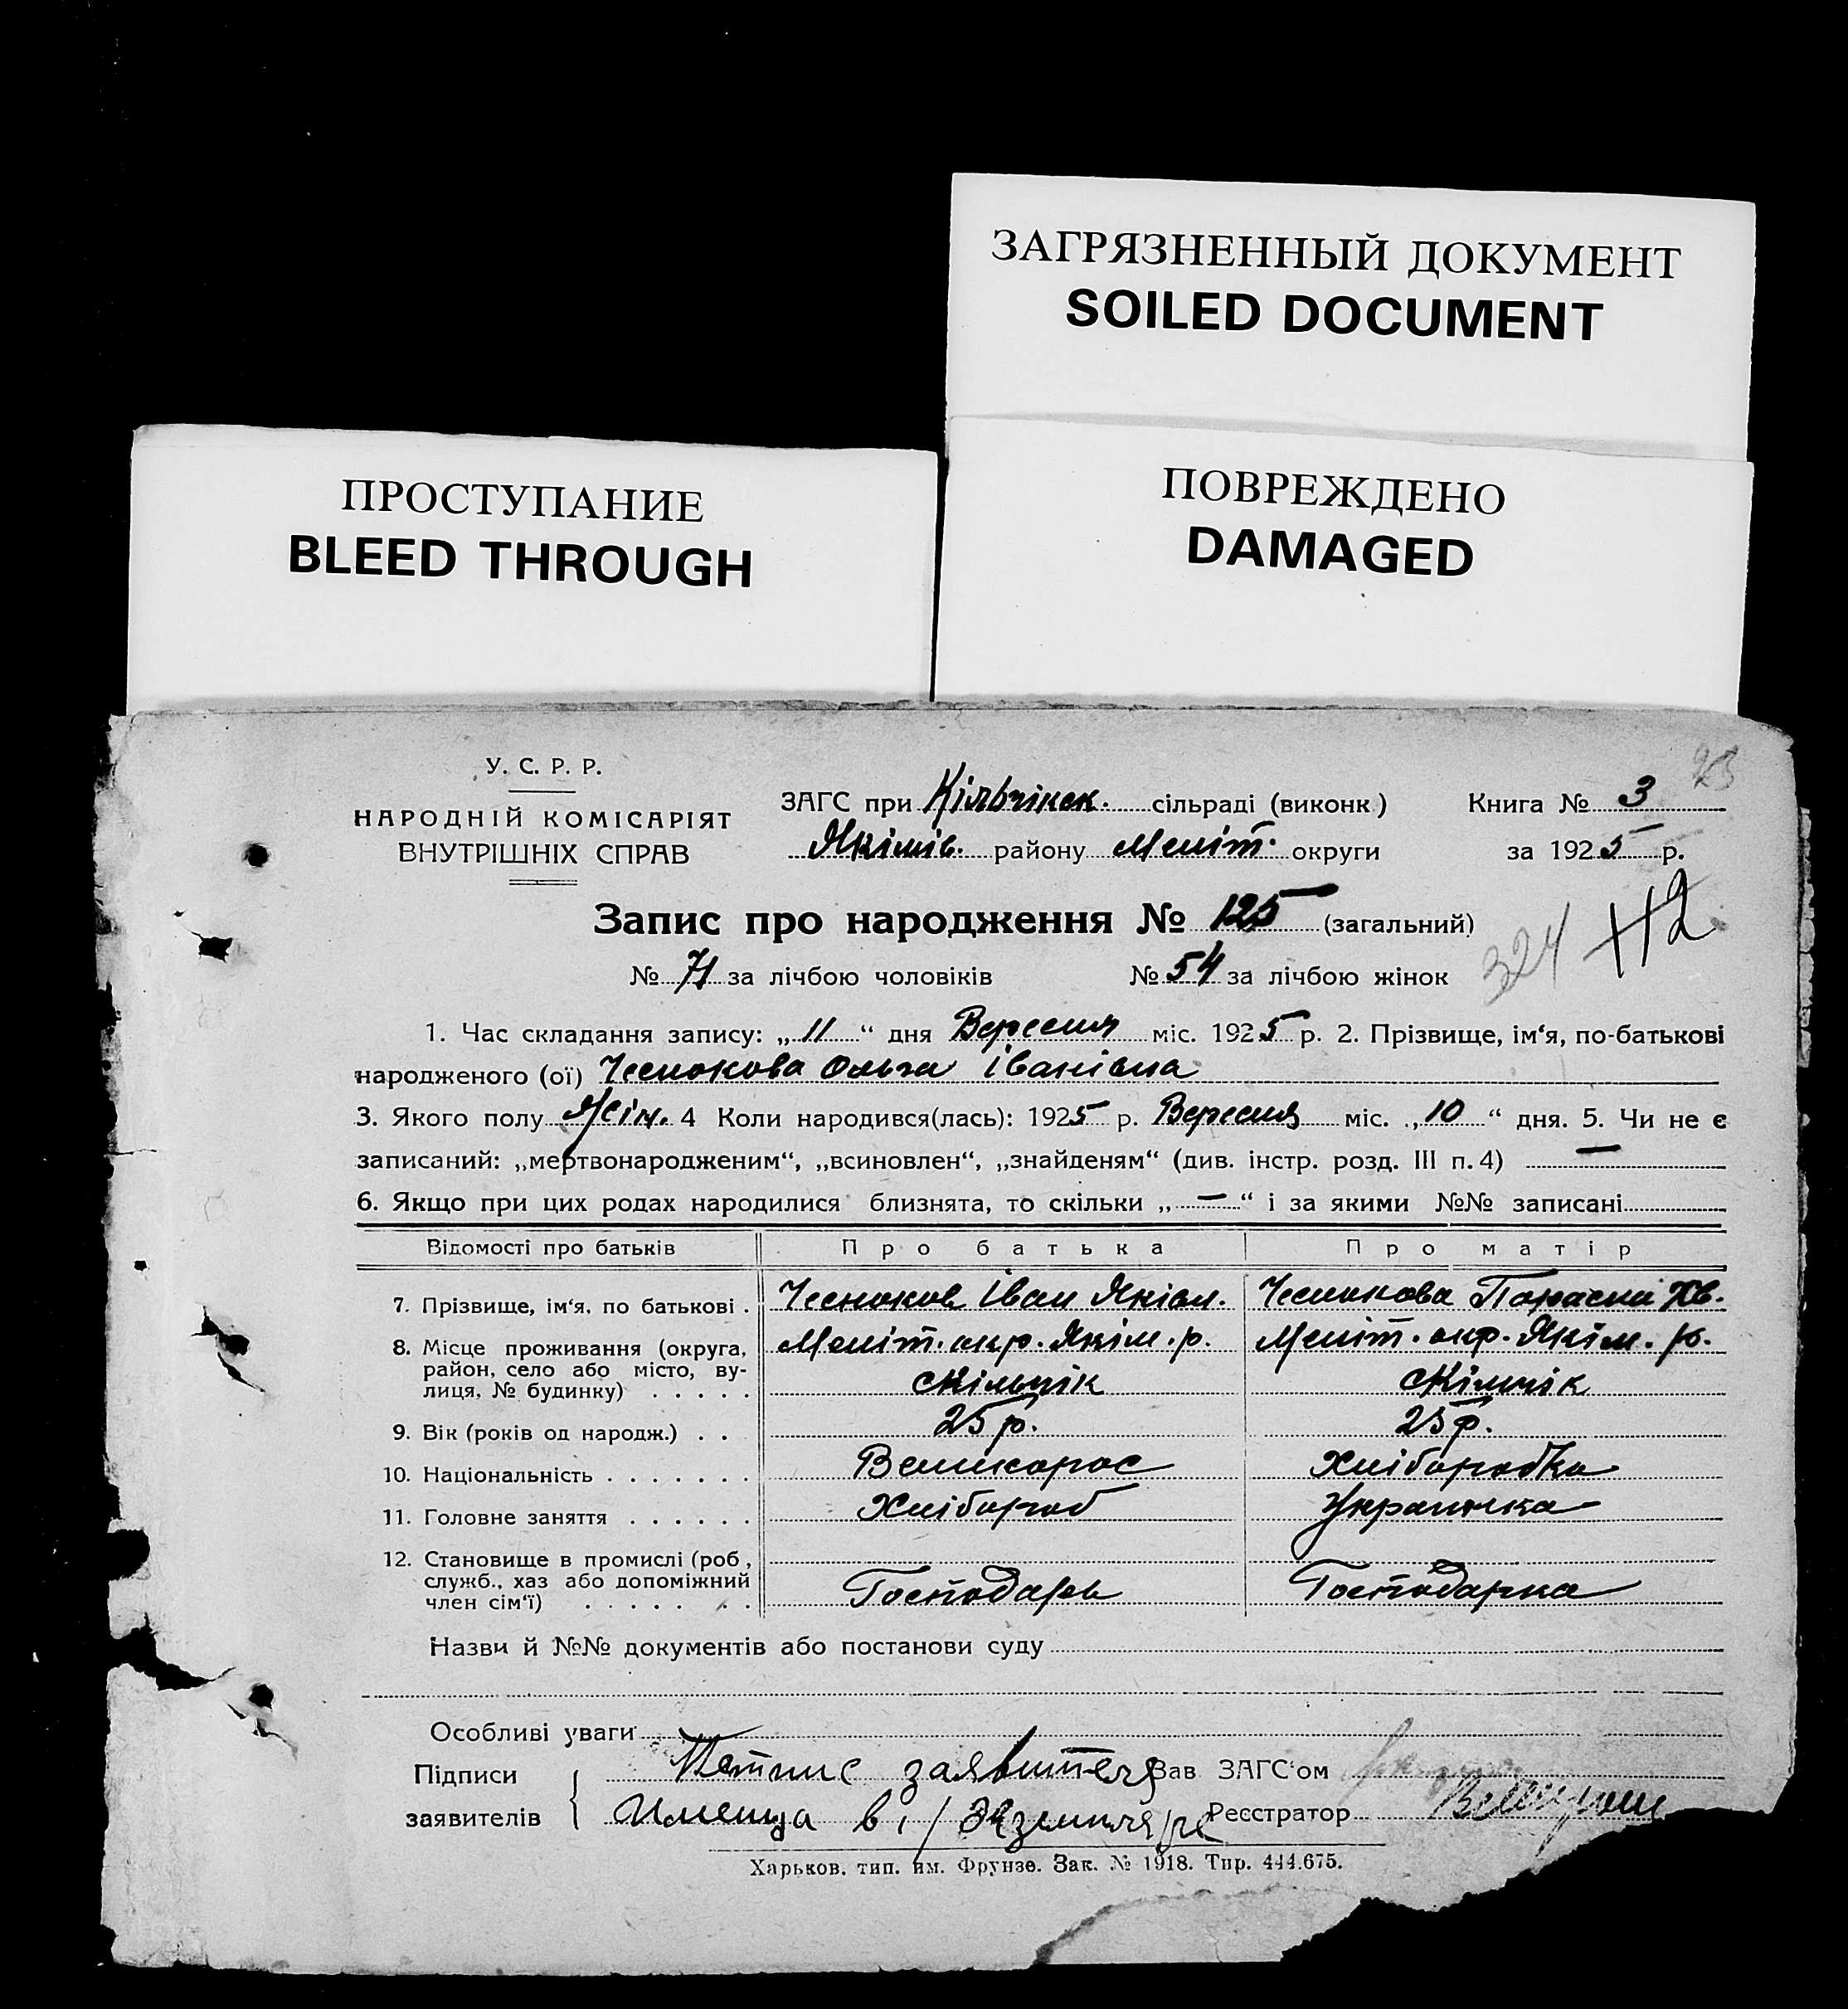 ЗАГРЯЗНЕННЫЙ ДОКУМЕНТ
SOILED DOCUMENT
ПРОСТУПАНИЕ
BLEED THROUGH
ПОВРЕЖДЕНО
DAMAGED
У. С. Р. Р.
НАРОДНІЙ КОМІСАРІЯТ
ВНУТРІШНІХ СПРАВ
ЗАГС при Кільчікск. сільраді (виконк) Книга № 3
Якімів. району Меліт. округи за 1925 р.
Запис про народження № 125 (загальний)
324 112
№ 71 за лічбою чоловіків № 54 за лічбою жінок
1. Час складання запису: „11“ дня Вересня міс. 1925 р. 2. Прізвище, ім‘я, по-батькові
народженого (ої) Чеснокова Ольга Іванівна
3. Якого полу Жін. 4 Коли народився(лась): 1925 р. Вересня міс. „10“ дня. 5. Чи не є
записаний: „мертвонародженим“, „всиновлен“, „знайденям“ (див. інстр. розд. III п. 4) —
6. Якщо при цих родах народилися близнята, то скільки „—“ і за якими №№ записані
Відомості про батьків Про батька Про матір
7. Прізвище, ім‘я, по батькові . Чесноков Іван Яківл. Чеснокова Параска Хв.
8. Місце проживання (округа, Меліт. окр. Якім. р. Меліт. окр. Якім. р.
район, село або місто, ву-
лиця, № будинку) . . . . . с Кільчік с Кільчік
9. Вік (років од народж.) . . 25 р. 25 р.
10. Національність . . . . . . . Великорос Хліборобка
11. Головне заняття . . . . . . Хлібороб Украінка
12. Становище в промислі (роб,
служб., хаз або допоміжний
член сім‘ї) . . . . . . . Господарь Господарка
Назви й №№ документів або постанови суду
Особливі уваги
Підписи заявителя Зав ЗАГС‘ом
заявителів в 1/ Экземпляре Реєстратор
Харьков. тип. им. Фрунзе. Зак. № 1918. Тир. 444.675.